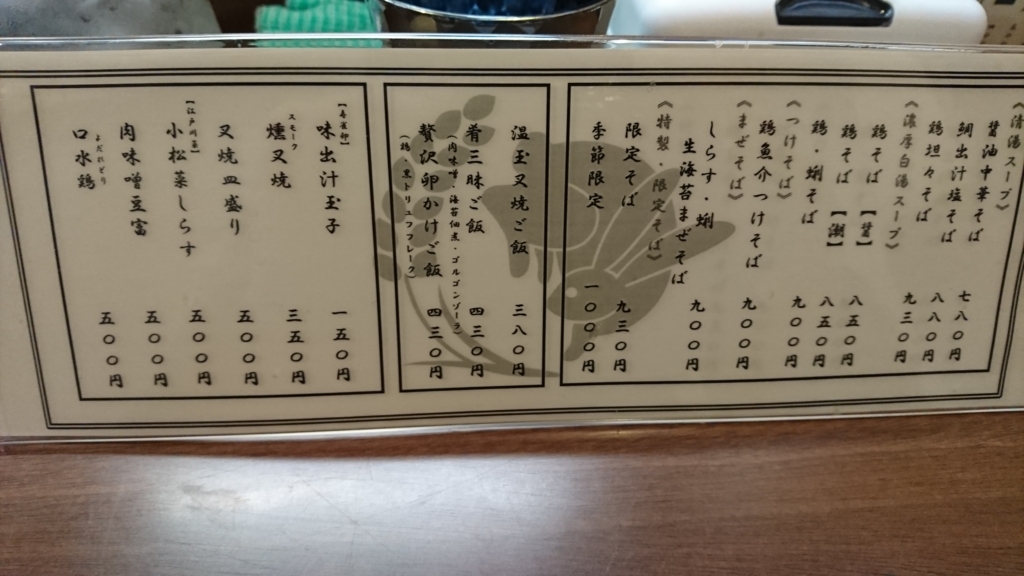 《清湯スープ》
醤油中華そば 七八〇円
鯛出汁塩そば 八八〇円
鶏坦々そば 九三〇円
《濃厚白湯スープ》
鶏そば【醤】 八五〇円
鶏そば【潮】 八五〇円
鶏・蜊そば 九〇〇円
《つけそば》
鶏魚介つけそば 九〇〇円
《まぜそば》
しらす・蜊
生海苔まぜそば 九〇〇円
《特製・限定そば》
限定そば 九三〇円
季節限定 一〇〇〇円
温玉叉焼ご飯 三八〇円
肴三昧ご飯 四三〇円
(肉味噌・海苔佃煮・ゴルゴンゾーラ)
贅沢卵かけご飯 四三〇円
(鶏・黒トリュフフレーク)
味出汁玉子 一五〇円
燻叉焼 三五〇円
スモーク
叉焼皿盛り 五〇〇円
【江戸川菜】
小松菜しらす 五〇〇円
肉味噌豆富 五〇〇円
よだれどり
口水鶏 五〇〇円